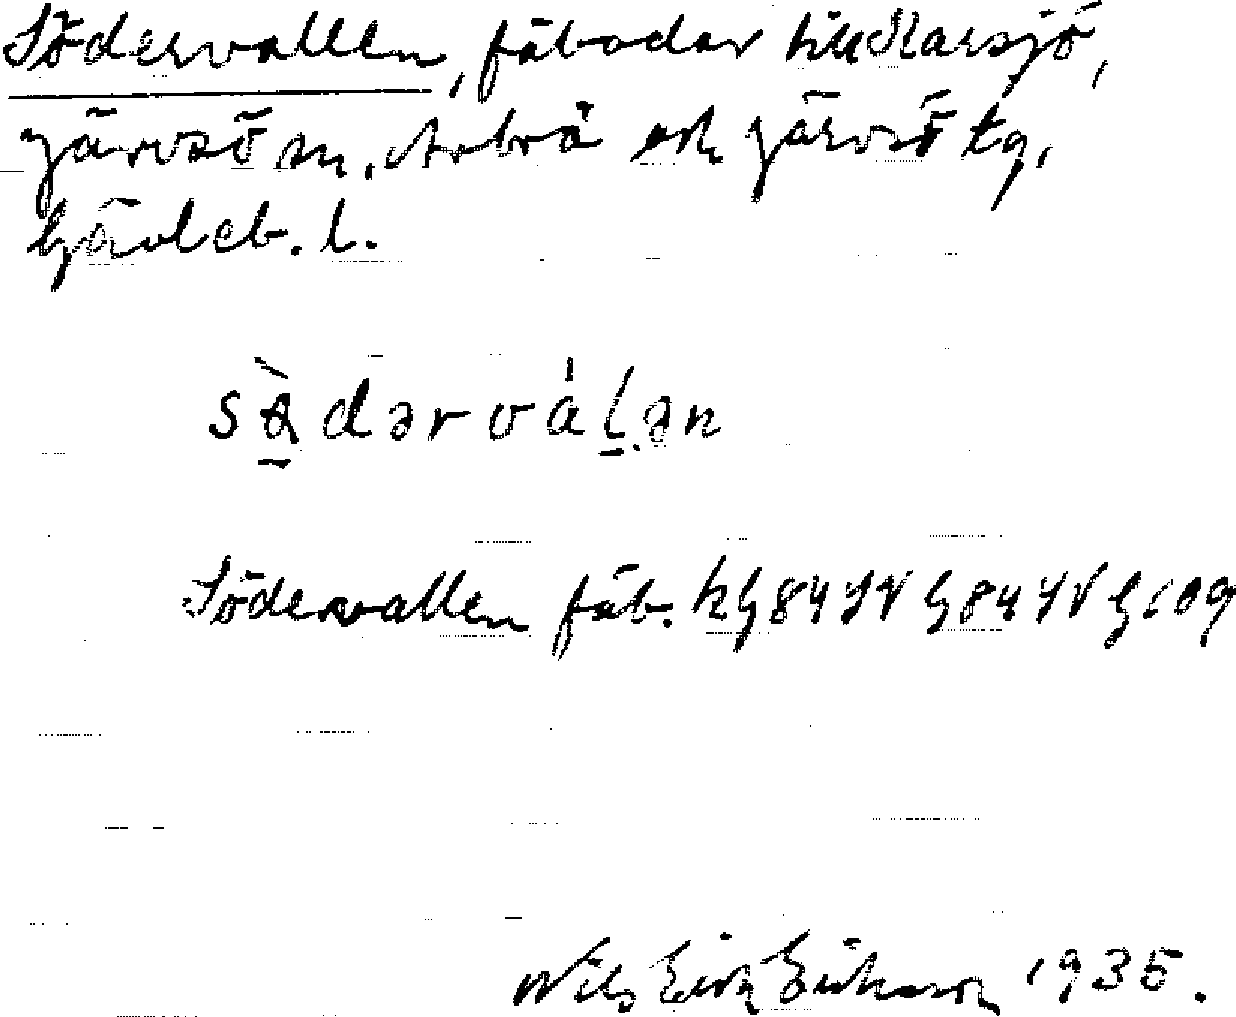 Södervallen, fäbodar till Karsjö,
Järvsö sn, Arbrå och Järvsö tg,
Gävleb. l.
Södervallen fäb. hG 84 SV G 84 SV G 109
Nils Eirik Eriksson 1935.